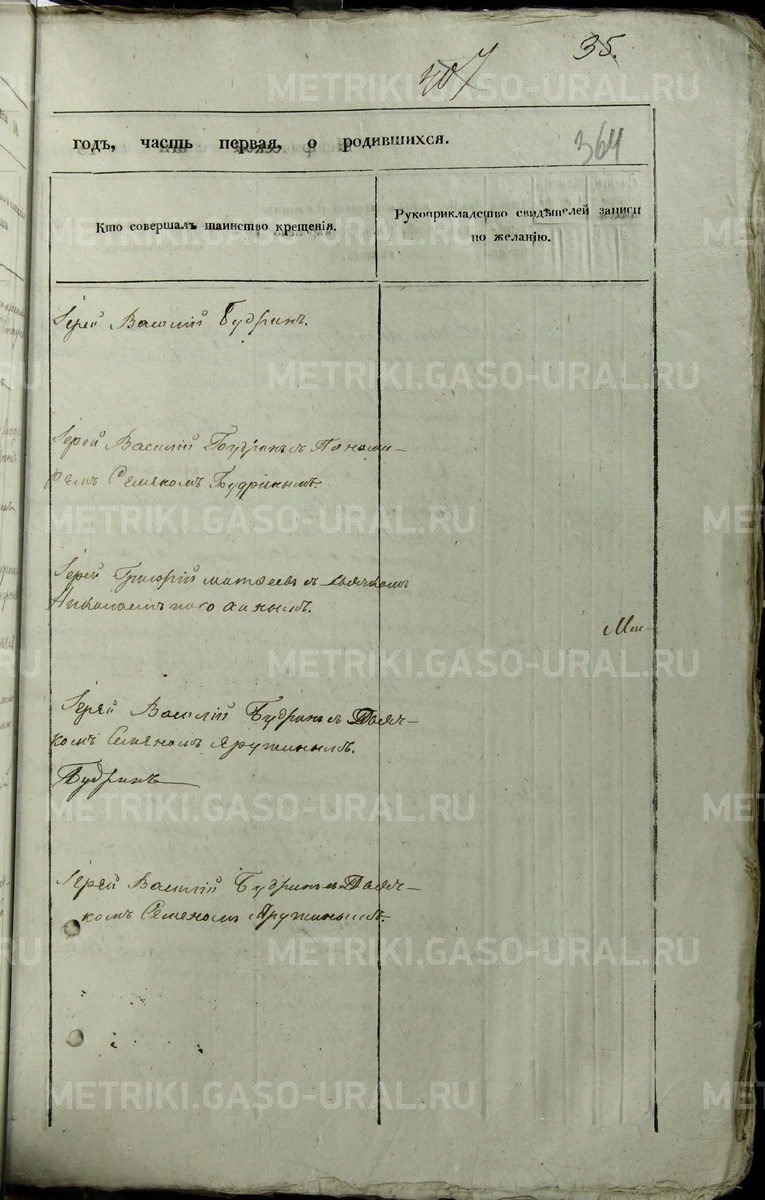 35.
407
364
годъ, часть первая, о родившихся.
Кто совершалъ таинство крещенія.
Рукоприкладство свидѣтелей записи
по желанію.
Іерей Василій Будринъ.
Іерей Василій Будринъ съ Понома-
ремъ Семеномъ Будринымъ.
Іерей Григорій Матвеевъ съ
Николаемъ
Іерей Василій Будринъ съ Дьяч-
комъ Семеномъ Яружинымъ.
Будринъ
Іерей Василій Будринъ съ Дьяч-
комъ Семеномъ Яружинымъ.
METRIKI.GASO-URAL.RU